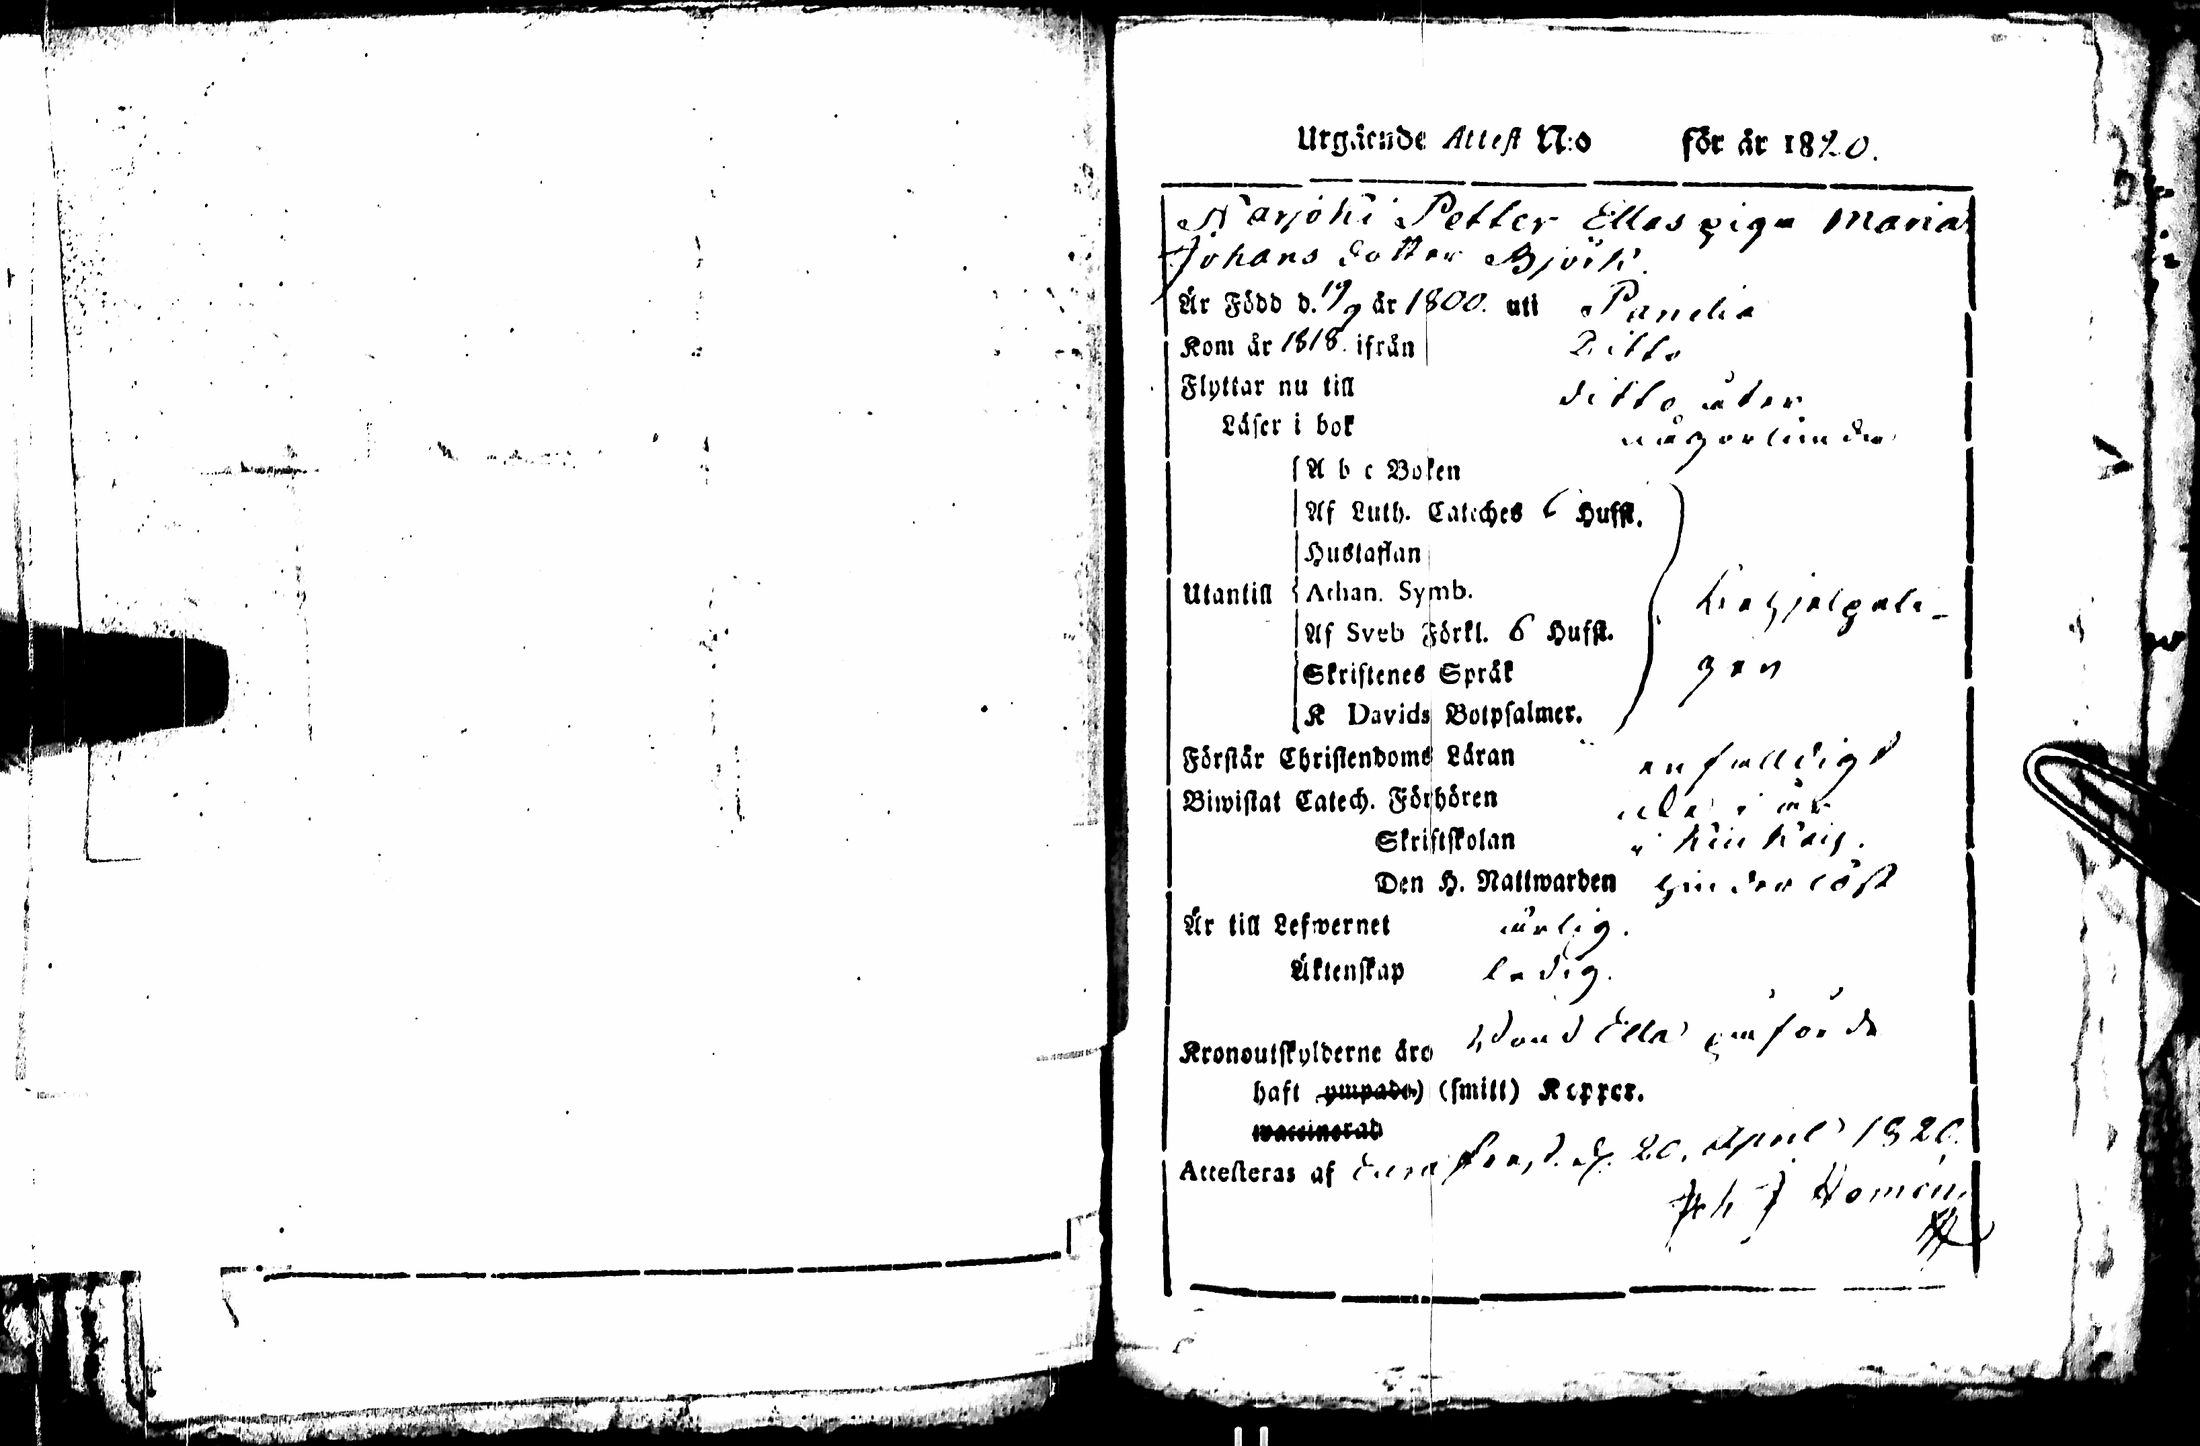 Utgående Attest N:o för år 1820.
Karjoki Petter Ellas piga Maria
Johans dotter Björk.
Är Född d. 19/9 år 1800. uti Panelia
Kom år 1818. ifrån Ditto
Flyttar nu till ditto åter
Läser i bok någorlunda
A b c Boken
Af Luth. Cateches 6 Hufst.
Hustaflan
Utantill Athan. Symb. hoghjelpeli-
Af Sveb Förkl. 6 Hufst.
Skriftenes Språk gen
K Davids Botpsalmer.
Förstår Christendoms Läran enfaldigt
Biwistat Catech. Förhören
Skriftskolan i Kiukais.
Den H. Nattwarden hinderlöst
Är till Lefwernet ärlig.
Äktenskap ledig.
Kronoutskylderne äro Ella påförde
haft ympade) (smitt) Koppor.
waccinerad
Attesteras af d. 20. April 1820.
Joh J Homén.